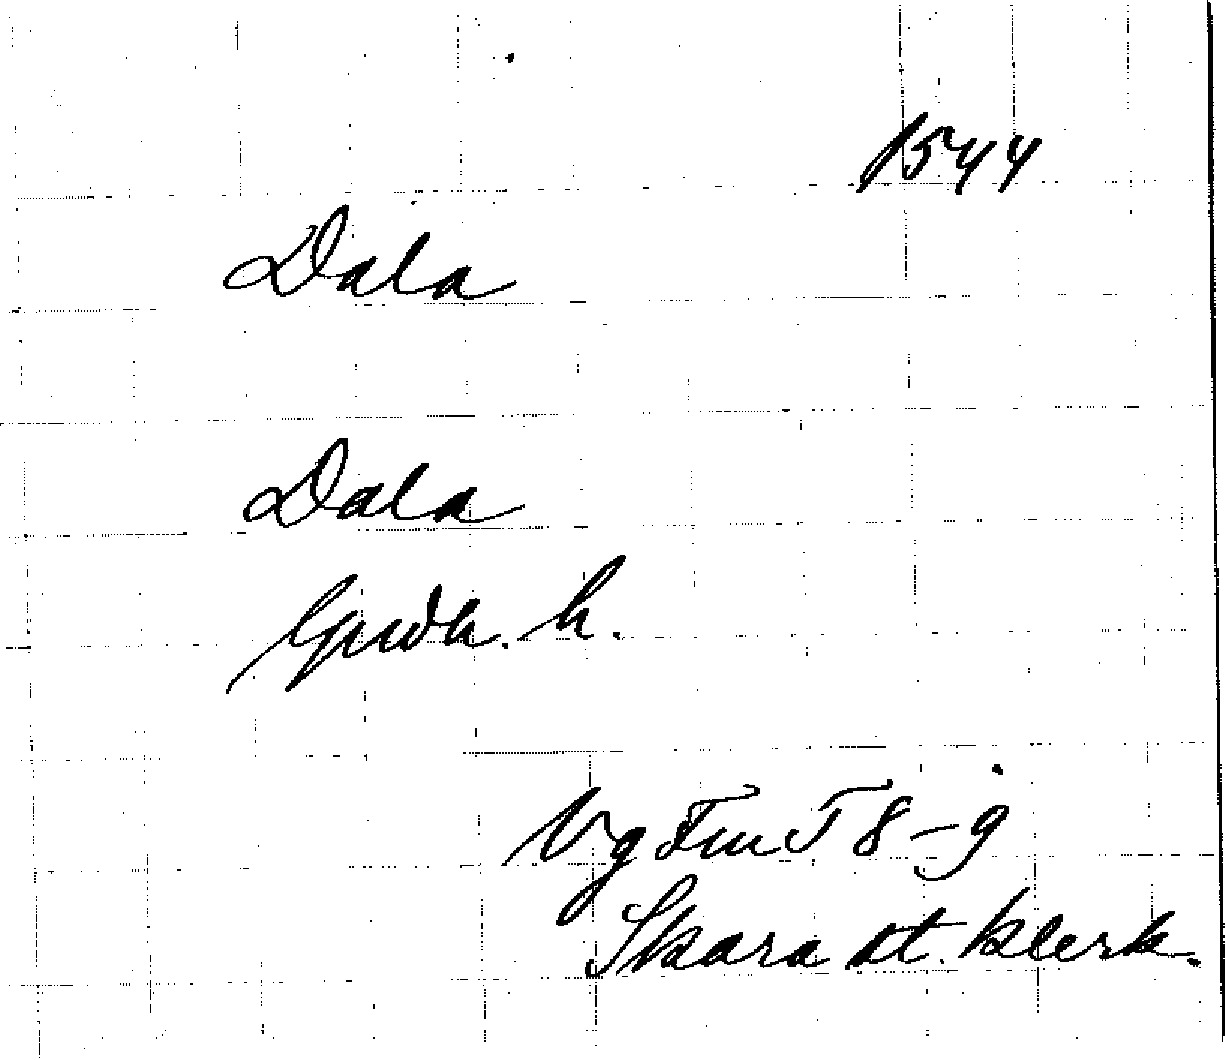 1544
Dala
Dala
Gudh. h.
Vg FmT 8-9
Skara st. klerk.